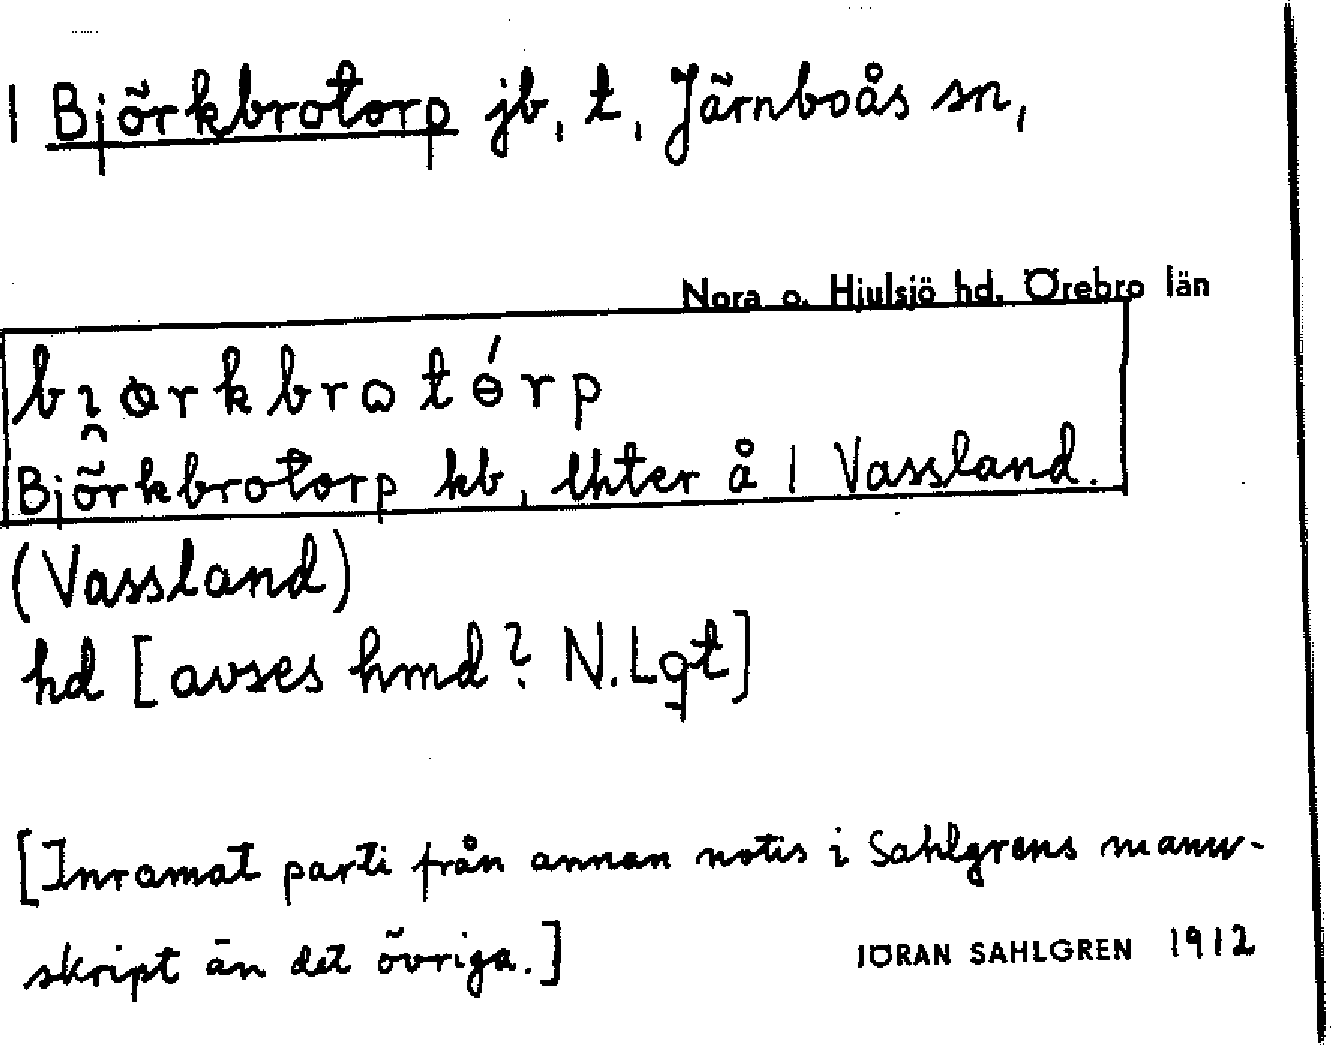 1 Björkbrotorp jb, t, Järnboås sn,
Nora o. Hjulsjö hd. Örebro län
Björkbrotorp kb, lhter å 1 Vassland.
(Vassland)
hd [avses hmd? N.Lgt]
[Inramat parti från annan notis i Sahlgrens manu-
skript än det övriga.]
JÖRAN SAHLGREN 1912